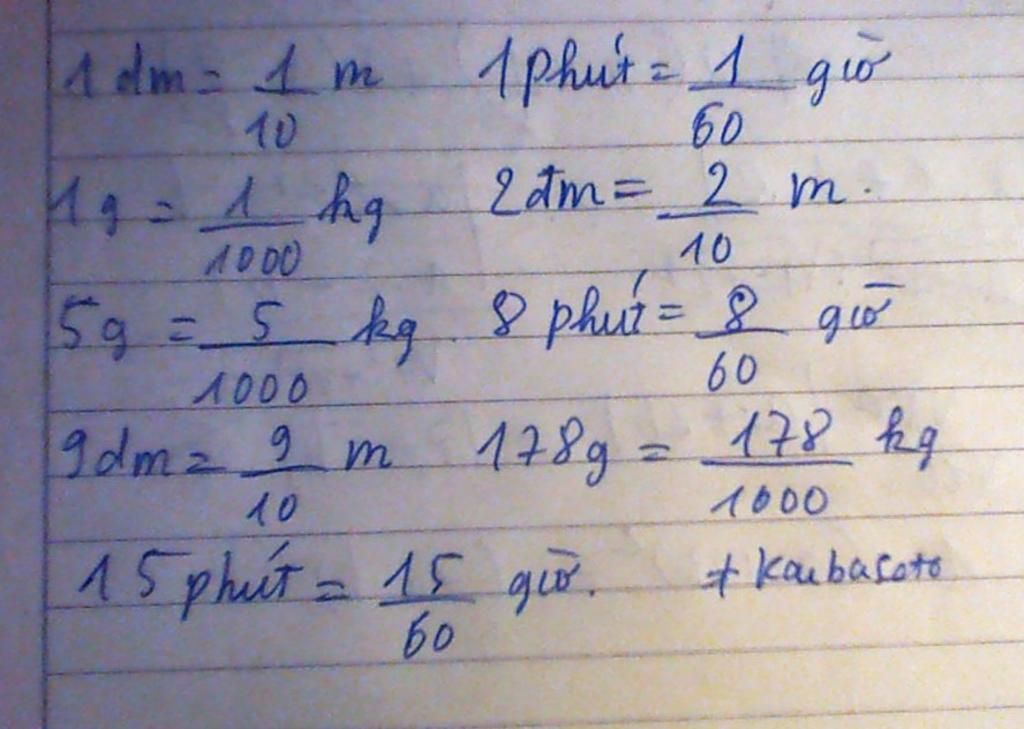 1 dm = 1/10 m 1 phút = 1/60 giờ
1g = 1/1000 kg 2dm = 2/10 m.
5g = 5/1000 kg. 8 phút = 8/60 giờ
9dm = 9/10 m 178g = 178/1000 kg
15 phút = 15/60 giờ. + Koubasoto